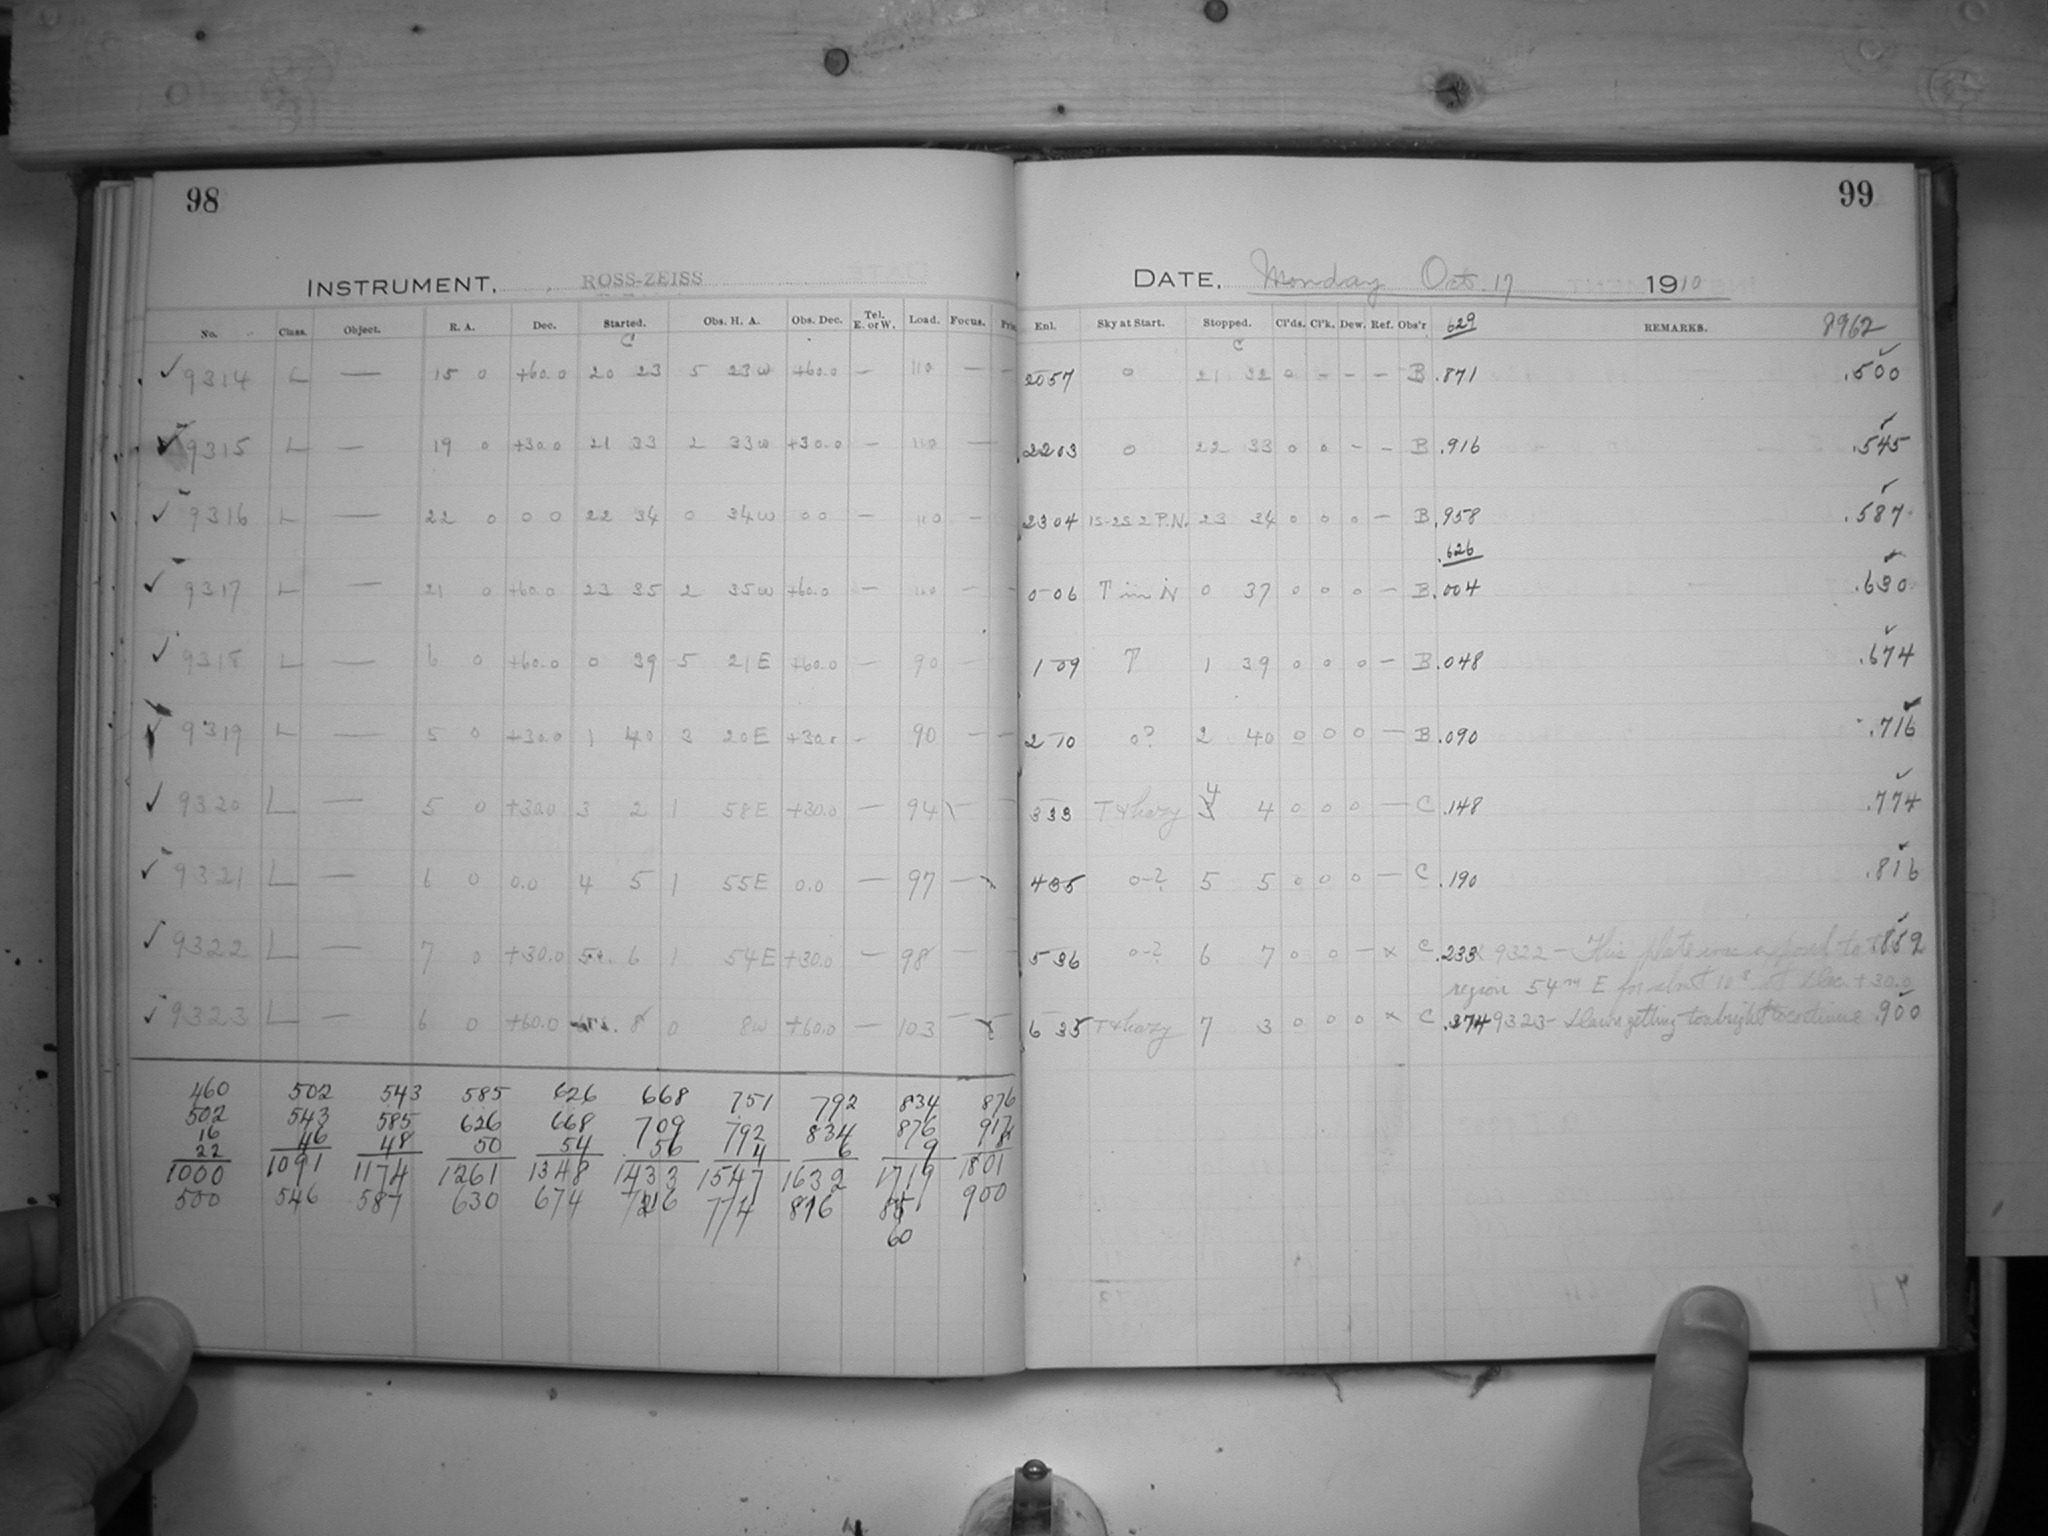 98
INSTRUMENT, ROSS-ZEISS
No. Class. Object. R. A. Dec. Started. Obs. H. A. Obs. Dec. Tel. E. or W. Load. Focus.
C
9314 L — 15 0 +60.0 20 23 5 23w +60.0 — 110 — —
9315 L — 19 0 +30.0 21 33 2 33w +30.0 — 110 —
9316 L — 22 0 0 0 22 34 0 34w 0 0 — 110 —
9317 L — 21 0 +60.0 23 35 2 35w +60.0 — 110 —
9318 L — 6 0 +60.0 0 39 5 21E +60.0 — 90 —
9319 L — 5 0 +30.0 1 40 3 20E +30.0 — 90 — —
9320 L — 5 0 +30.0 3 2 1 58E +30.0 — 94
9321 L — 6 0 0.0 4 5 1 55E 0.0 — 97 —
9322 L — 7 0 +30.0 5 6 1 54E +30.0 — 98 —
9323 L — 6 0 +60.0 8 0 8w +60.0 — 103 —
460 502 543 585 626 668 751 792 834 876
502 543 585 626 668 709 792 834 876 917
16 46 48 50 54 56 4 6 9 8
22
1000 1091 1174 1261 1348 1433 1547 1632 1719 1801
500 546 587 630 674 716 774 816 900
60
99
DATE, Monday Oct. 17 1910
Enl. Sky at Start. Stopped. Cl'ds. Cl'k. Dew. Ref. Obs'r 629 REMARKS. 8962
C
2057 0 21 32 0 - - - B .871 .500
2203 0 22 33 0 0 - - B .916 .545
2304 1S-2S 2 P.N. 23 34 0 0 0 - B .958 .587
.626
0 06 T in N 0 37 0 0 0 - B .004 .630
1 09 T 1 39 0 0 0 - B .048 .674
2 10 0? 2 40 0 0 0 — B .090 .716
3 33 T & hazy 4 4 0 0 0 — C .148 .774
4 35 0-? 5 5 0 0 0 — C .190 .816
5 36 0-? 6 7 0 0 — x C .233 x 9322 - This plate was exposed to .859
region 54m E for about 10s at Dec. +30.0
6 35 T & hazy 7 3 0 0 0 x C .274 9323- Dawn getting too bright to continue .900